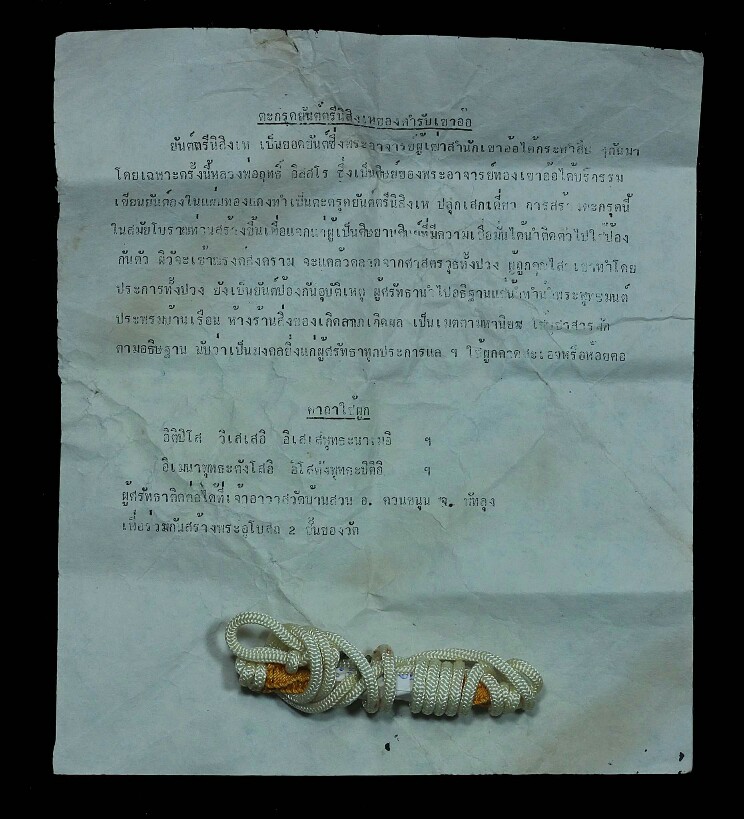 ตะกรุดยันต์ตรีนิสิงเหของสำรับเขาอ้อ
ยันต์ตรีนิสิงเห เป็นยอดยันต์ซึ่งพระอาจารย์ผู้เฒ่าสำนักเขาอ้อได้กระทำสืบ ๆกันมา
โดยเฉพาะครั้งนี้หลวงพ่อฤทธิ์ อิสสโร ซึ่งเป็นศิษย์ของพระอาจารย์ทองเขาอ้อได้บริกรรม
เขียนยันต์ลงในแผ่นทองแดงทำเป็นตะกรุดยันต์ตรีนิสิงเห ปลุกเสกเดี่ยว การสร้างตะกรุดนี้
ในสมัยโบราณท่านสร้างขึ้นเพื่อแจก ผู้เป็นศิษยานุศิษย์ที่มีความเชื่อมั่นได้นำติดตัวไปใช้ป้อง
กันตัว จะเข้าณรงค์สงคราม จะแคล้วคลาดจากศาสตราวุธทั้งปวง ผู้ถูกคุณไสย โดย
ประการทั้งปวง ยังเป็นยันต์ป้องกันอุบัติเหตุ ผู้ศรัทธานำไปอธิฐาน ทำน้ำพระพุทธมนต์
ประพรมบ้านเรือน ห้างร้านสิ่งของเกิดลาภเกิดผล เป็นเมตตามหานิยม
ตามอธิษฐาน นับว่าเป็นมงคลยิ่งแก่ผู้ศรัทธาทุกประการแล ฯ ใช้ผูกคาดสะเอวหรือห้อยคอ
คาถาใช้ผูก
อิติปิโส วิเสเสอิ อิเสเสพุทธะนาเมอิ ฯ
อิเมนาพุทธะตังโสอิ อิโสตังพุทธะปิติอิ ฯ
ผู้ศรัทธาติดต่อได้ที่เจ้าอาวาสวัดบ้านสวน อ. ควนขนุน จ. พัทลุง
เพื่อร่วมกันสร้างพระอุโบสถ 2 ชั้นของวัด